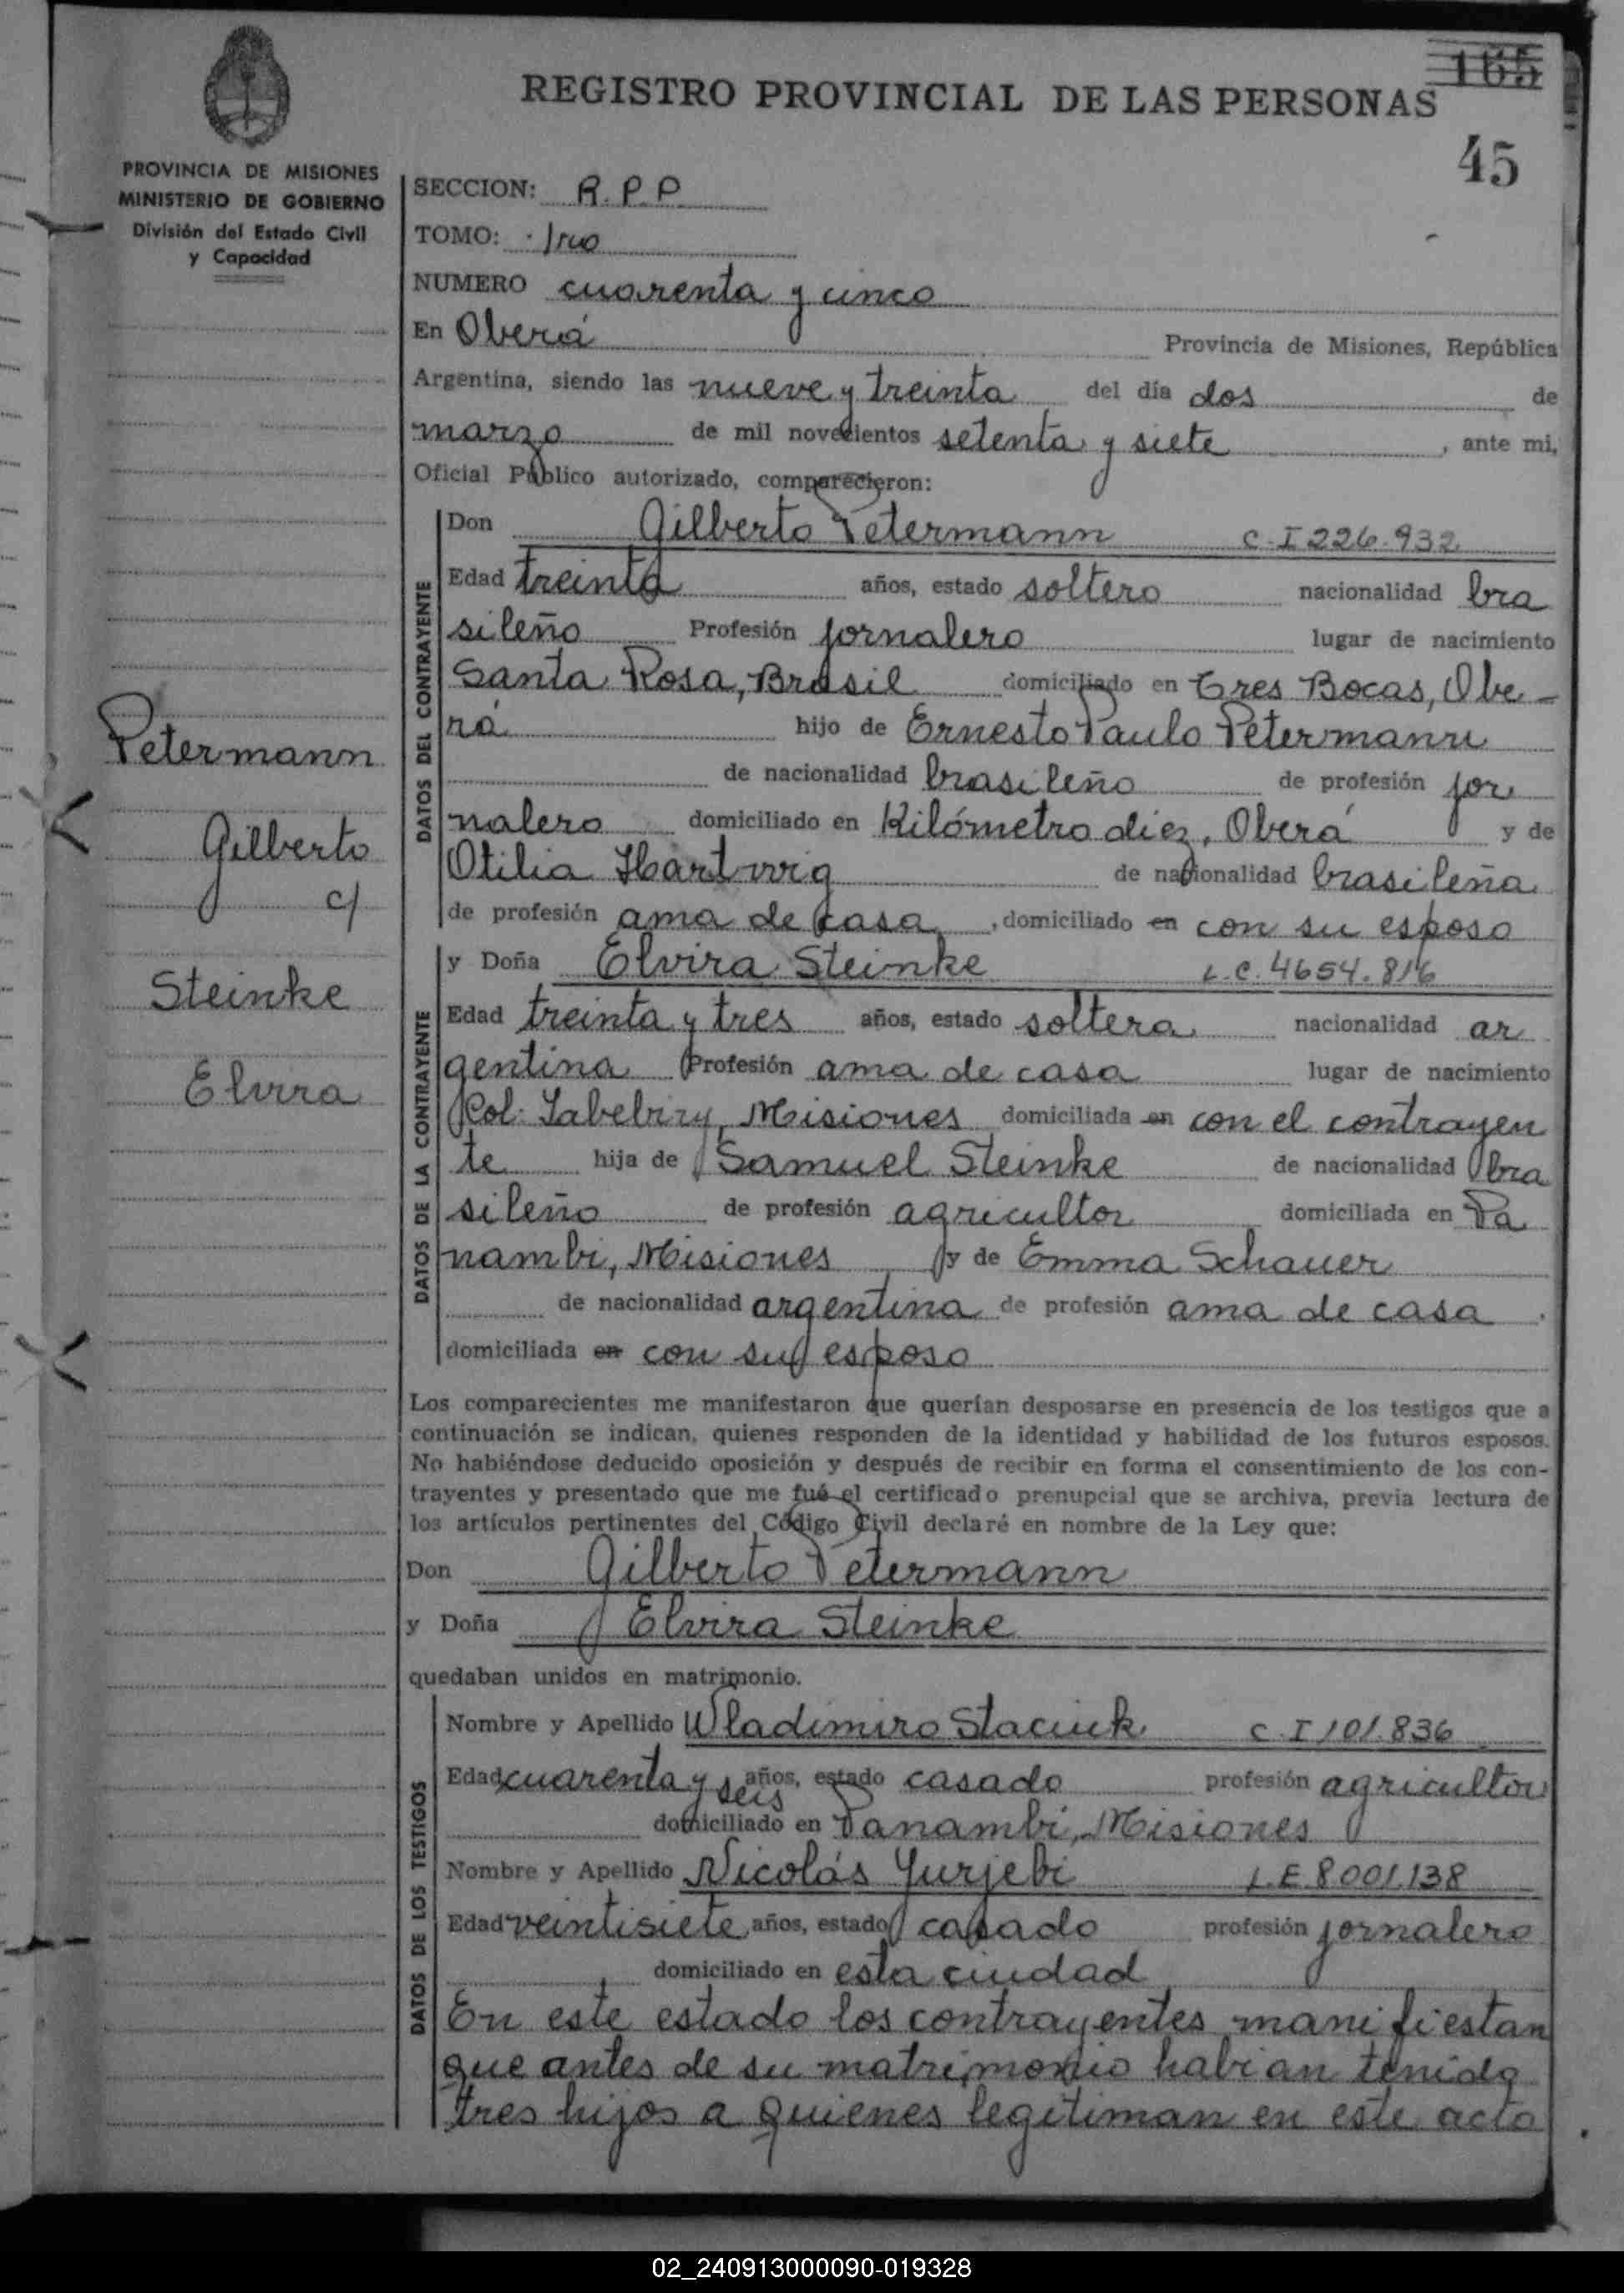 165
REGISTRO PROVINCIAL DE LAS PERSONAS
45
PROVINCIA DE MISIONES
MINISTERIO DE GOBIERNO
División del Estado Civil
y Capacidad
SECCION: R.P.P.
TOMO: 1ro
NUMERO cuarenta y cinco
En Oberá Provincia de Misiones, República
Argentina, siendo las nueve y treinta del día dos de
marzo de mil novecientos setenta y siete, ante mi,
Oficial Público autorizado, comparecieron:
Petermann
Gilberto
c/
Steinke
Elvira
DATOS DEL CONTRAYENTE
Don Gilberto Petermann C.I 226.932
Edad treinta años, estado soltero nacionalidad bra
sileño Profesión jornalero lugar de nacimiento
Santa Rosa, Brasil domiciliado en Tres Bocas, Obe-
rá hijo de Ernesto Paulo Petermann
de nacionalidad brasileño de profesión jor
nalero domiciliado en Kilómetro diez, Oberá y de
Otilia Hartwig de nacionalidad brasileña
de profesión ama de casa, domiciliado en con su esposo
DATOS DE LA CONTRAYENTE
y Doña Elvira Steinke L.C. 4654.816
Edad treinta y tres años, estado soltera nacionalidad ar
gentina Profesión ama de casa lugar de nacimiento
Col. Yabebiry, Misiones domiciliada en con el contrayen
te hija de Samuel Steinke de nacionalidad bra
sileño de profesión agricultor domiciliada en Pa
nambi, Misiones y de Emma Schauer
de nacionalidad argentina de profesión ama de casa.
domiciliada en con su esposo
Los comparecientes me manifestaron que querían desposarse en presencia de los testigos que a
continuación se indican, quienes responden de la identidad y habilidad de los futuros esposos.
No habiéndose deducido oposición y después de recibir en forma el consentimiento de los con-
trayentes y presentado que me fué el certificado prenupcial que se archiva, previa lectura de
los artículos pertinentes del Código Civil declaré en nombre de la Ley que:
Don Gilberto Petermann
y Doña Elvira Steinke
quedaban unidos en matrimonio.
DATOS DE LOS TESTIGOS
Nombre y Apellido Wladimiro Staciuk C.I 101.836
Edad cuarenta y seis años, estado casado profesión agricultor
domiciliado en Panambi, Misiones
Nombre y Apellido Nicolás Yurjebi L.E. 8001.138
Edad veintisiete años, estado casado profesión jornalero
domiciliado en esta ciudad
En este estado los contrayentes manifiestan
que antes de su matrimonio habian tenido
tres hijos a quienes legitiman en este acto
02_240913000090-019328